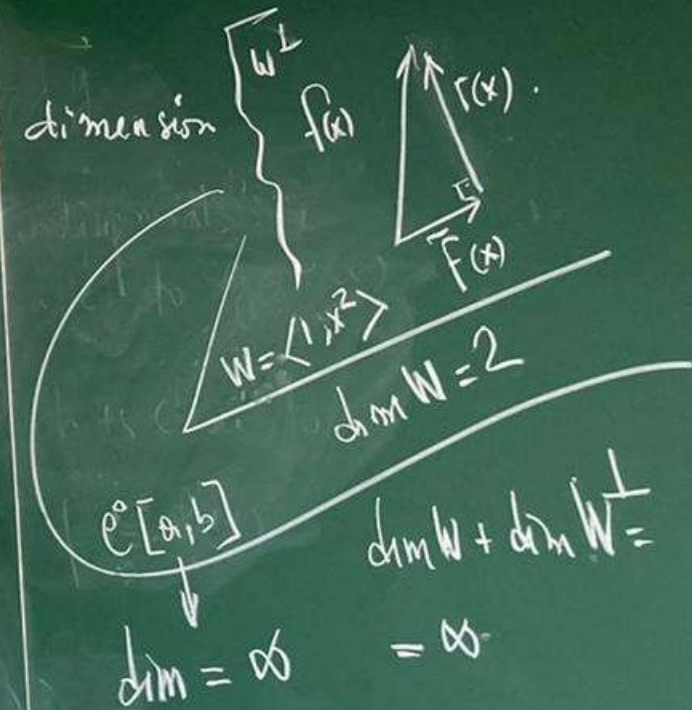 W⊥
dimensión
f(x)
r(x).
F(x)
W=<1,x²>
dim W=2
e°[a,b]
dim W + dim W⊥ =
dim = ∞
= ∞